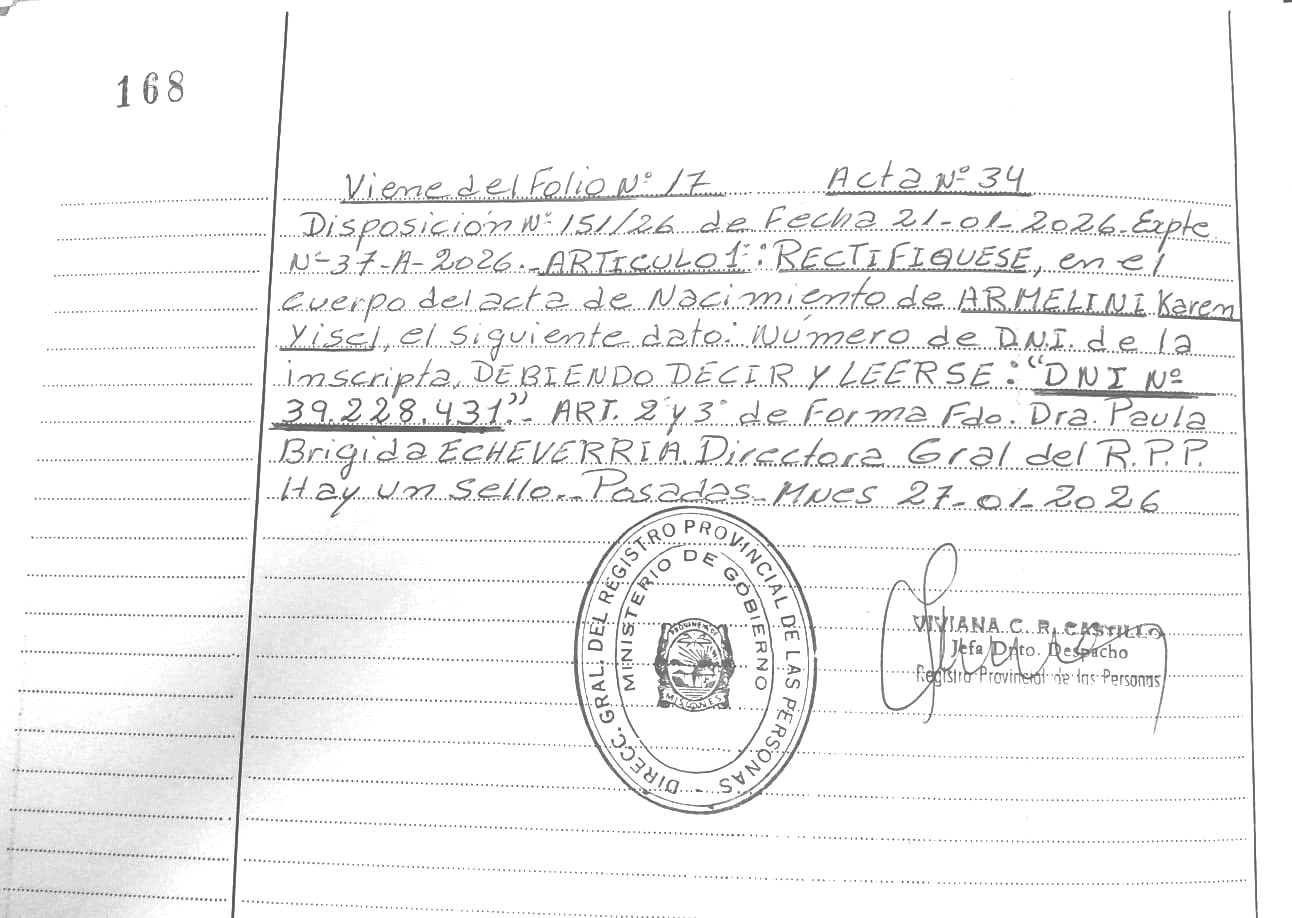 168
Viene del Folio Nº 17 Acta Nº 34
Disposición Nº 151/26 de Fecha 21-01-2026-Expte
Nº-37-A-2026.-ARTICULO 1º: RECTIFIQUESE, en el
cuerpo del acta de Nacimiento de ARMELINI Karen
Yisel, el siguiente dato: Número de DNI. de la
inscripta, DEBIENDO DECIR Y LEERSE: "DNI Nº
39.228.431".- ART. 2º y 3º de Forma Fdo. Dra. Paula
Brigida ECHEVERRIA. Directora Gral del R.P.P.
Hay un Sello.-Posadas-Mnes 27-01-2026
DIRECC. GRAL. DEL REGISTRO PROVINCIAL DE LAS PERSONAS -
MINISTERIO DE GOBIERNO
PROVINCIA DE
MISIONES
VIVIANA C. R. CASTILLO
Jefa Dpto. Despacho
Registro Provincial de las Personas